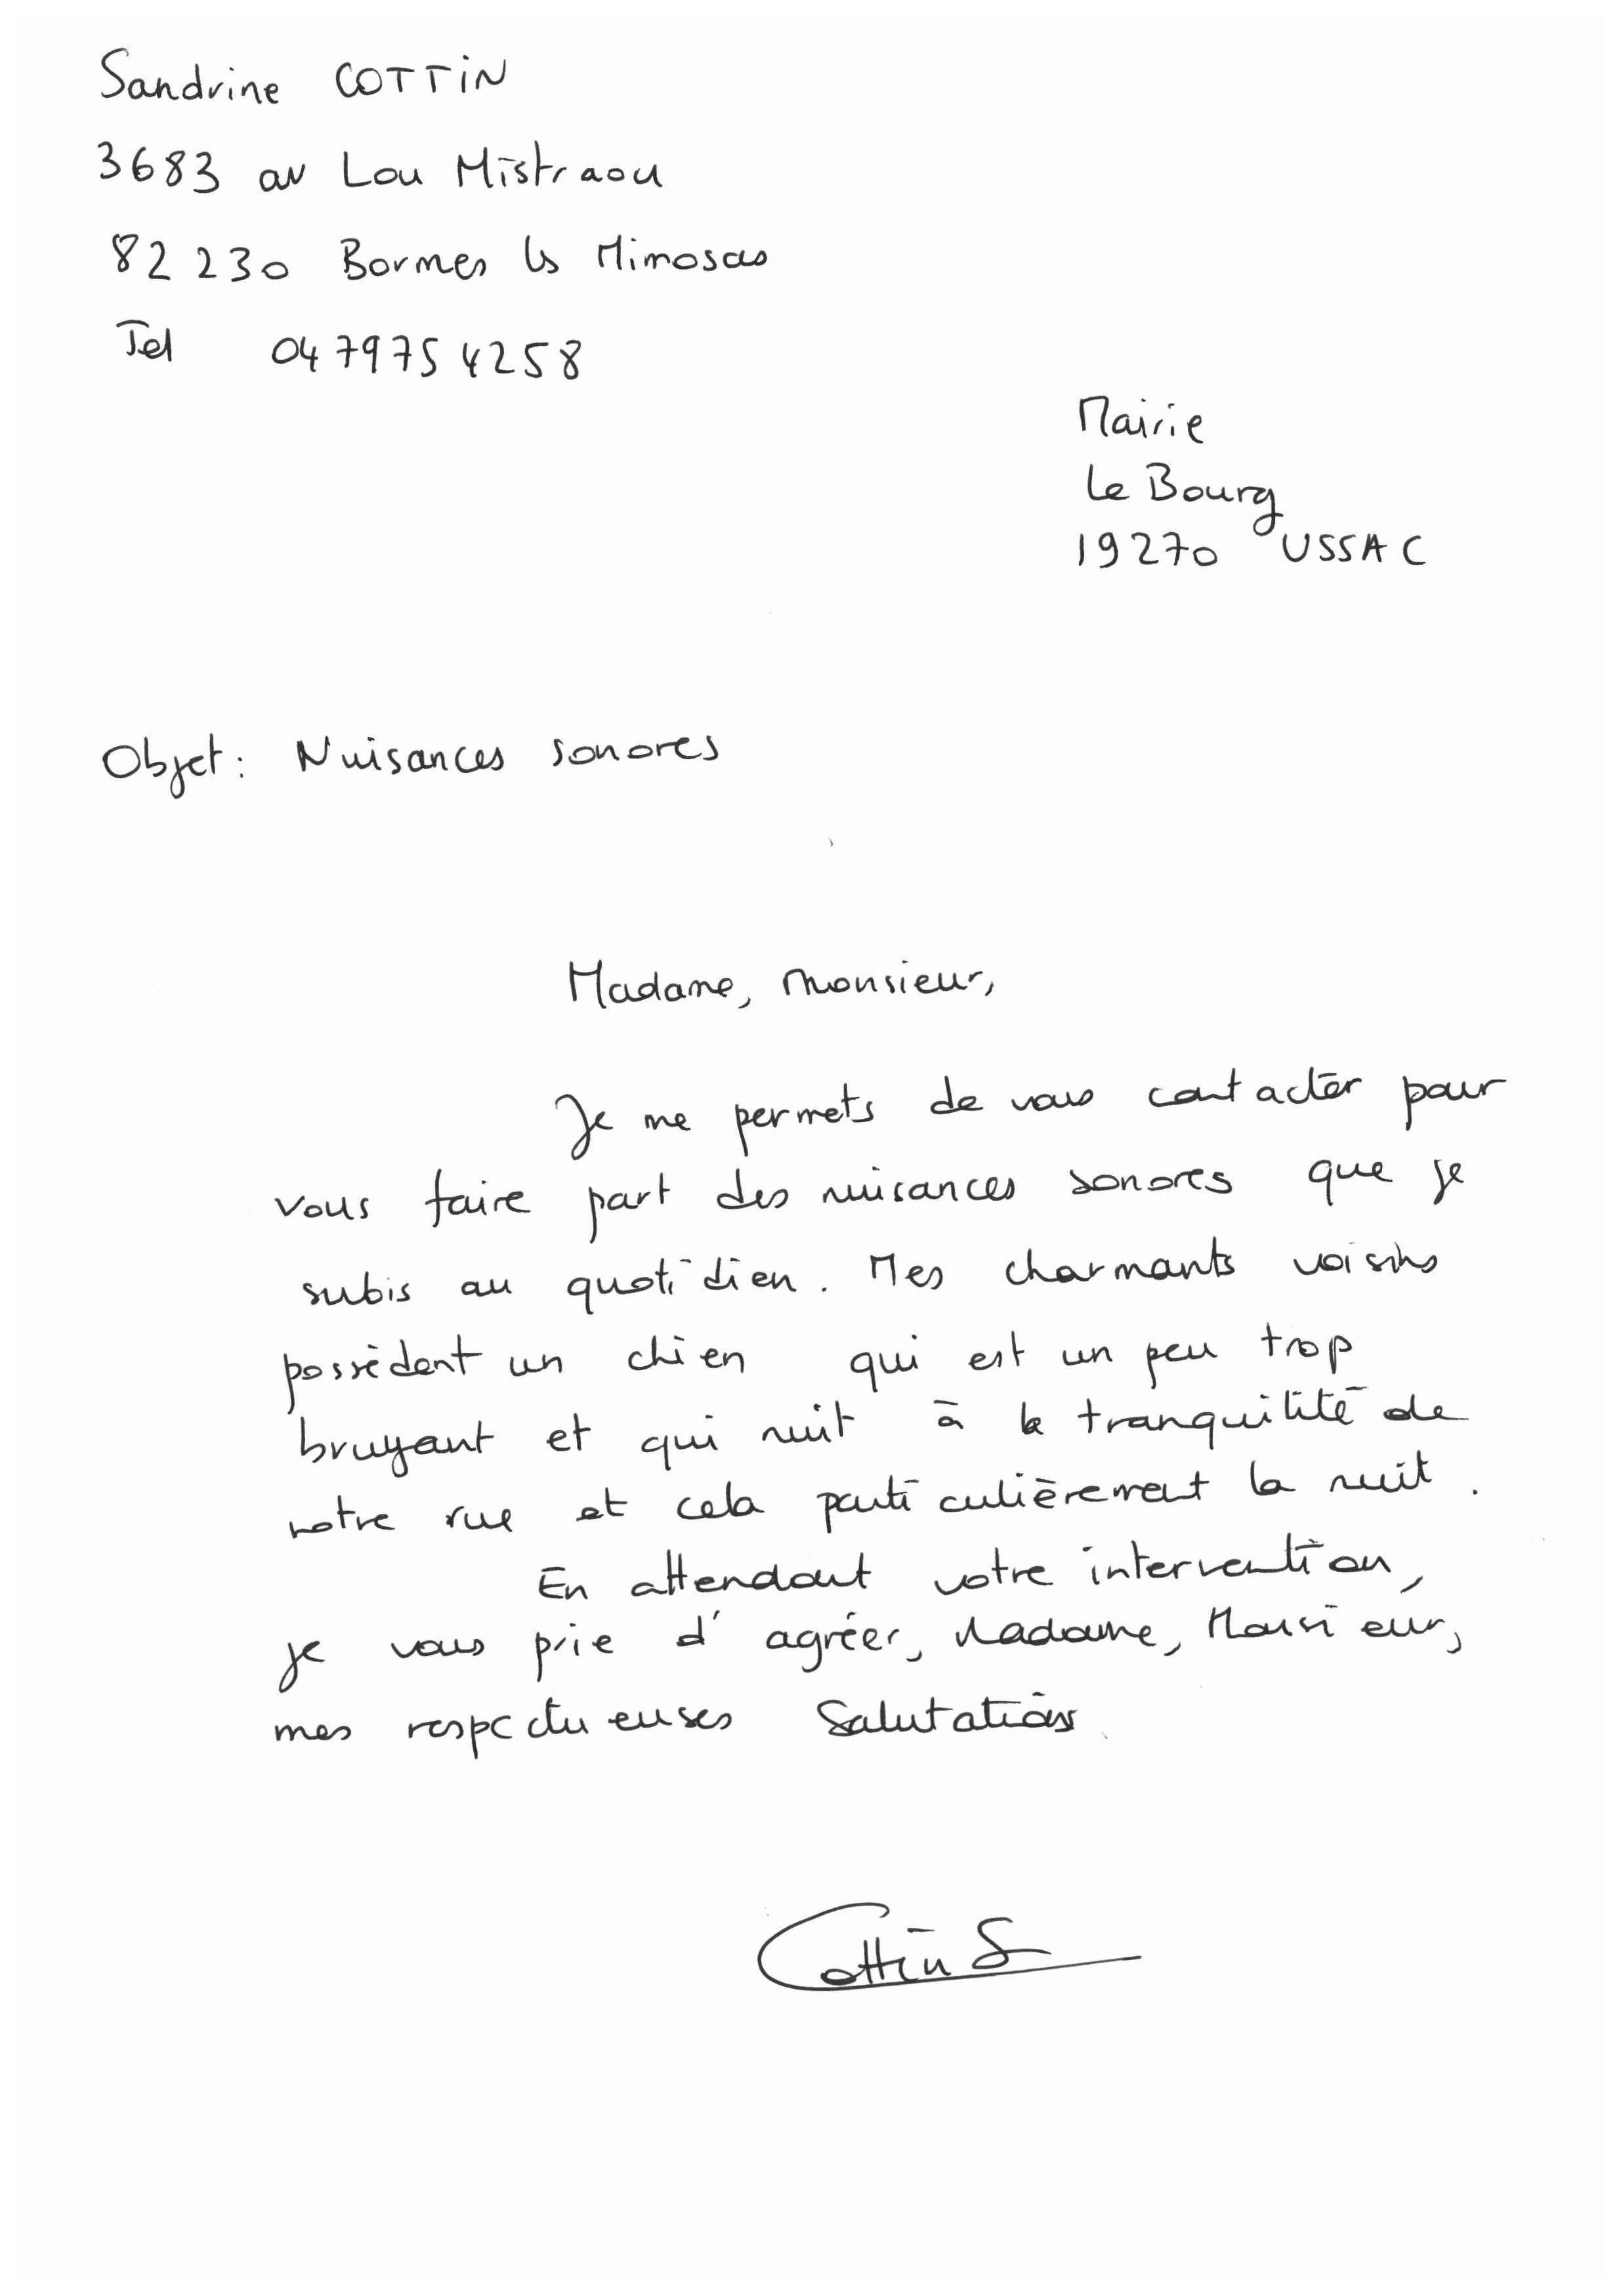 Sandrine COTTIN
3683 av Lou Mistraou
82230 Bormes les Mimosas
Tel 0479754258
Mairie
Le Bourg
19270 USSAC
Objet : Nuisances sonores
Madame, Monsieur,
Je me permets de vous contacter pour
vous faire part des nuisances sonores que je
subis au quotidien. Mes charmants voisins
possèdent un chien qui est un peu trop
bruyant et qui nuit à la tranquilité de
notre rue et cela particulièrement la nuit.
En attendant votre intervention,
je vous prie d'agréer, Madame, Monsieur,
mes respectueuses Salutations
Cottin S